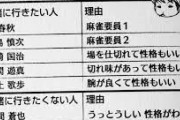 緒に行きたい人 理由
春秋 麻雀要員1
慎次 麻雀要員2
国治 場を仕切れて性格もいい
遊真 切れ味があって性格も
歌歩 腕が良くて性格もいい
緒に行きたくない人 理由
蒼也 うっとうしい 性格がわ